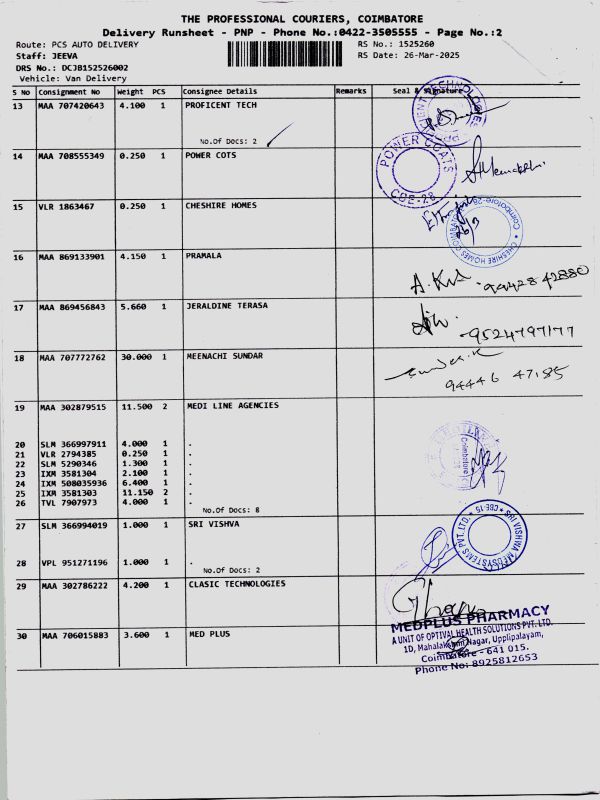 THE PROFESSIONAL COURIERS, COIMBATORE
Delivery Runsheet - PNP - Phone No.:0422-3505555 - Page No.:2
Route: PCS AUTO DELIVERY RS No.: 1525260
Staff: JEEVA RS Date: 26-Mar-2025
DRS No.: DCJB152526002
Vehicle: Van Delivery
S No Consignment No Weight PCS Consignee Details Remarks Seal & Signature
13 MAA 707420643 4.100 1 PROFICENT TECH
No.Of Docs: 2
14 MAA 708555349 0.250 1 POWER COTS
POWER COATS
CBE-28
15 VLR 1863467 0.250 1 CHESHIRE HOMES
26/3
CHESHIRE HOMES COIMBATORE
Coimbatore-28
16 MAA 869133901 4.150 1 PRAMALA
99428 42880
17 MAA 869456843 5.660 1 JERALDINE TERASA
9524797177
18 MAA 707772762 30.000 1 MEENACHI SUNDAR
94446 47185
19 MAA 302879515 11.500 2 MEDI LINE AGENCIES
20 SLM 366997911 4.000 1 .
21 VLR 2794385 0.250 1 .
22 SLM 5290346 1.300 1 .
23 IXM 3581304 2.100 1 .
24 IXM 508035936 6.400 1 .
25 IXM 3581303 11.150 2 .
26 TVL 7907973 4.000 1 .
No.Of Docs: 8
27 SLM 366994019 1.000 1 SRI VISHVA
SRI VISHWA MEDSYSTEMS PVT.LTD.
CBE-15
28 VPL 951271196 1.000 1 .
No.Of Docs: 2
29 MAA 302786222 4.200 1 CLASIC TECHNOLOGIES
30 MAA 706015883 3.600 1 MED PLUS
MEDPLUS PHARMACY
A UNIT OF OPTIVAL HEALTH SOLUTIONS PVT. LTD.
1D, Mahalakshmi Nagar, Upplipalayam,
Coimbatore - 641 015.
Phone No: 8925812653